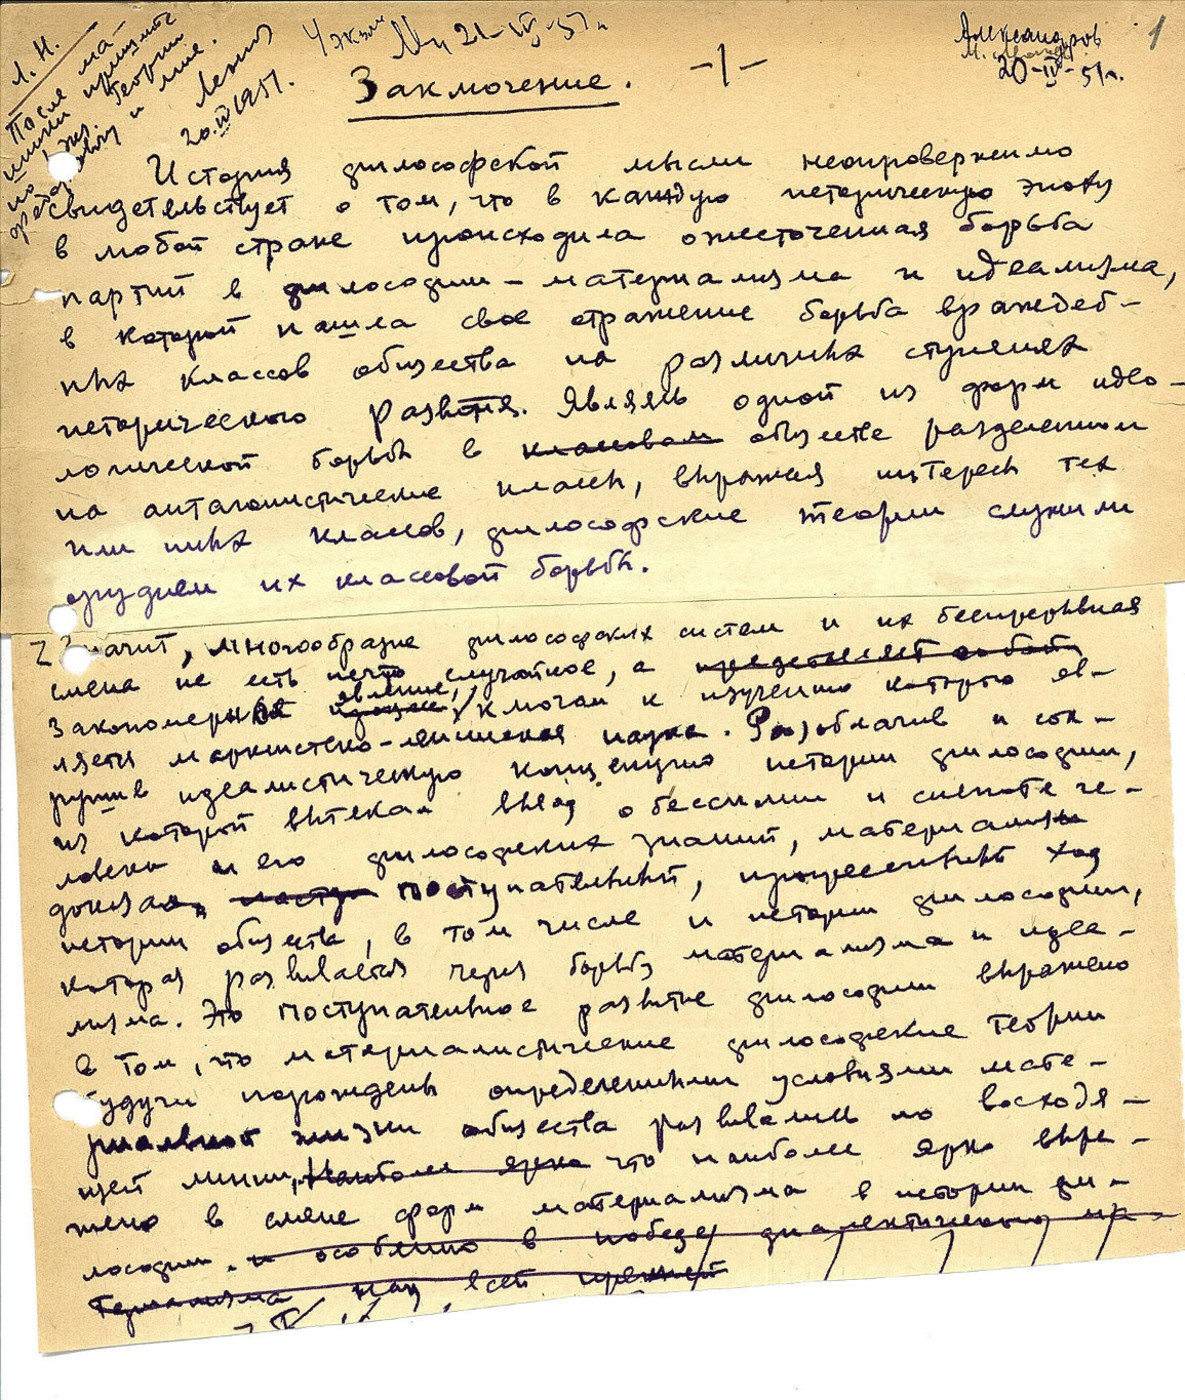 Л. Н.
После ма-
шинки пришлите
по 1 экз. Георгию
Федоровичу и мне.
20.IV 1951.
4 экзем 21-IV-51 г.
Александров
20-IV-51г.
1
Заключение. -1-
История философской мысли неопровержимо
свидетельствует о том, что в каждую историческую эпоху
в любой стране происходила ожесточенная борьба
партий в философии – материализма и идеализма,
в которой нашла свое отражение борьба враждеб-
ных классов общества на различных ступенях
исторического развития. Являясь одной из форм идео-
логической борьбы в классовом обществе разделенном
на антагонистические классы, выражая интересы тех
или иных классов, философские теории служили
орудием их классовой борьбы.
Значит, многообразие философских систем и их беспрерывная
смена не есть нечто случайное, а представляет собой
закономерное явление, процесс, ключом к изучению которого яв-
ляется марксистско-ленинская наука. Разоблачив и сок-
рушив идеалистическую концепцию истории философии,
из которой вытекал вывод о бессилии и слепоте че-
ловека и его философских знаний, материализм
доказал поступательный, прогрессивный ход
истории общества, в том числе и истории философии,
которая развивается через борьбу материализма и идеа-
лизма. Это поступательное развитие философии выражено
в том, что материалистические философские теории
будучи порождены определенными условиями мате-
риальной жизни общества развивались по восходя-
щей линии, Наиболее ярко что наиболее ярко выра-
жено в смене форм материализма в истории фи-
лософии. и особенно в победе диалектического ма-
териализма над всей прежней